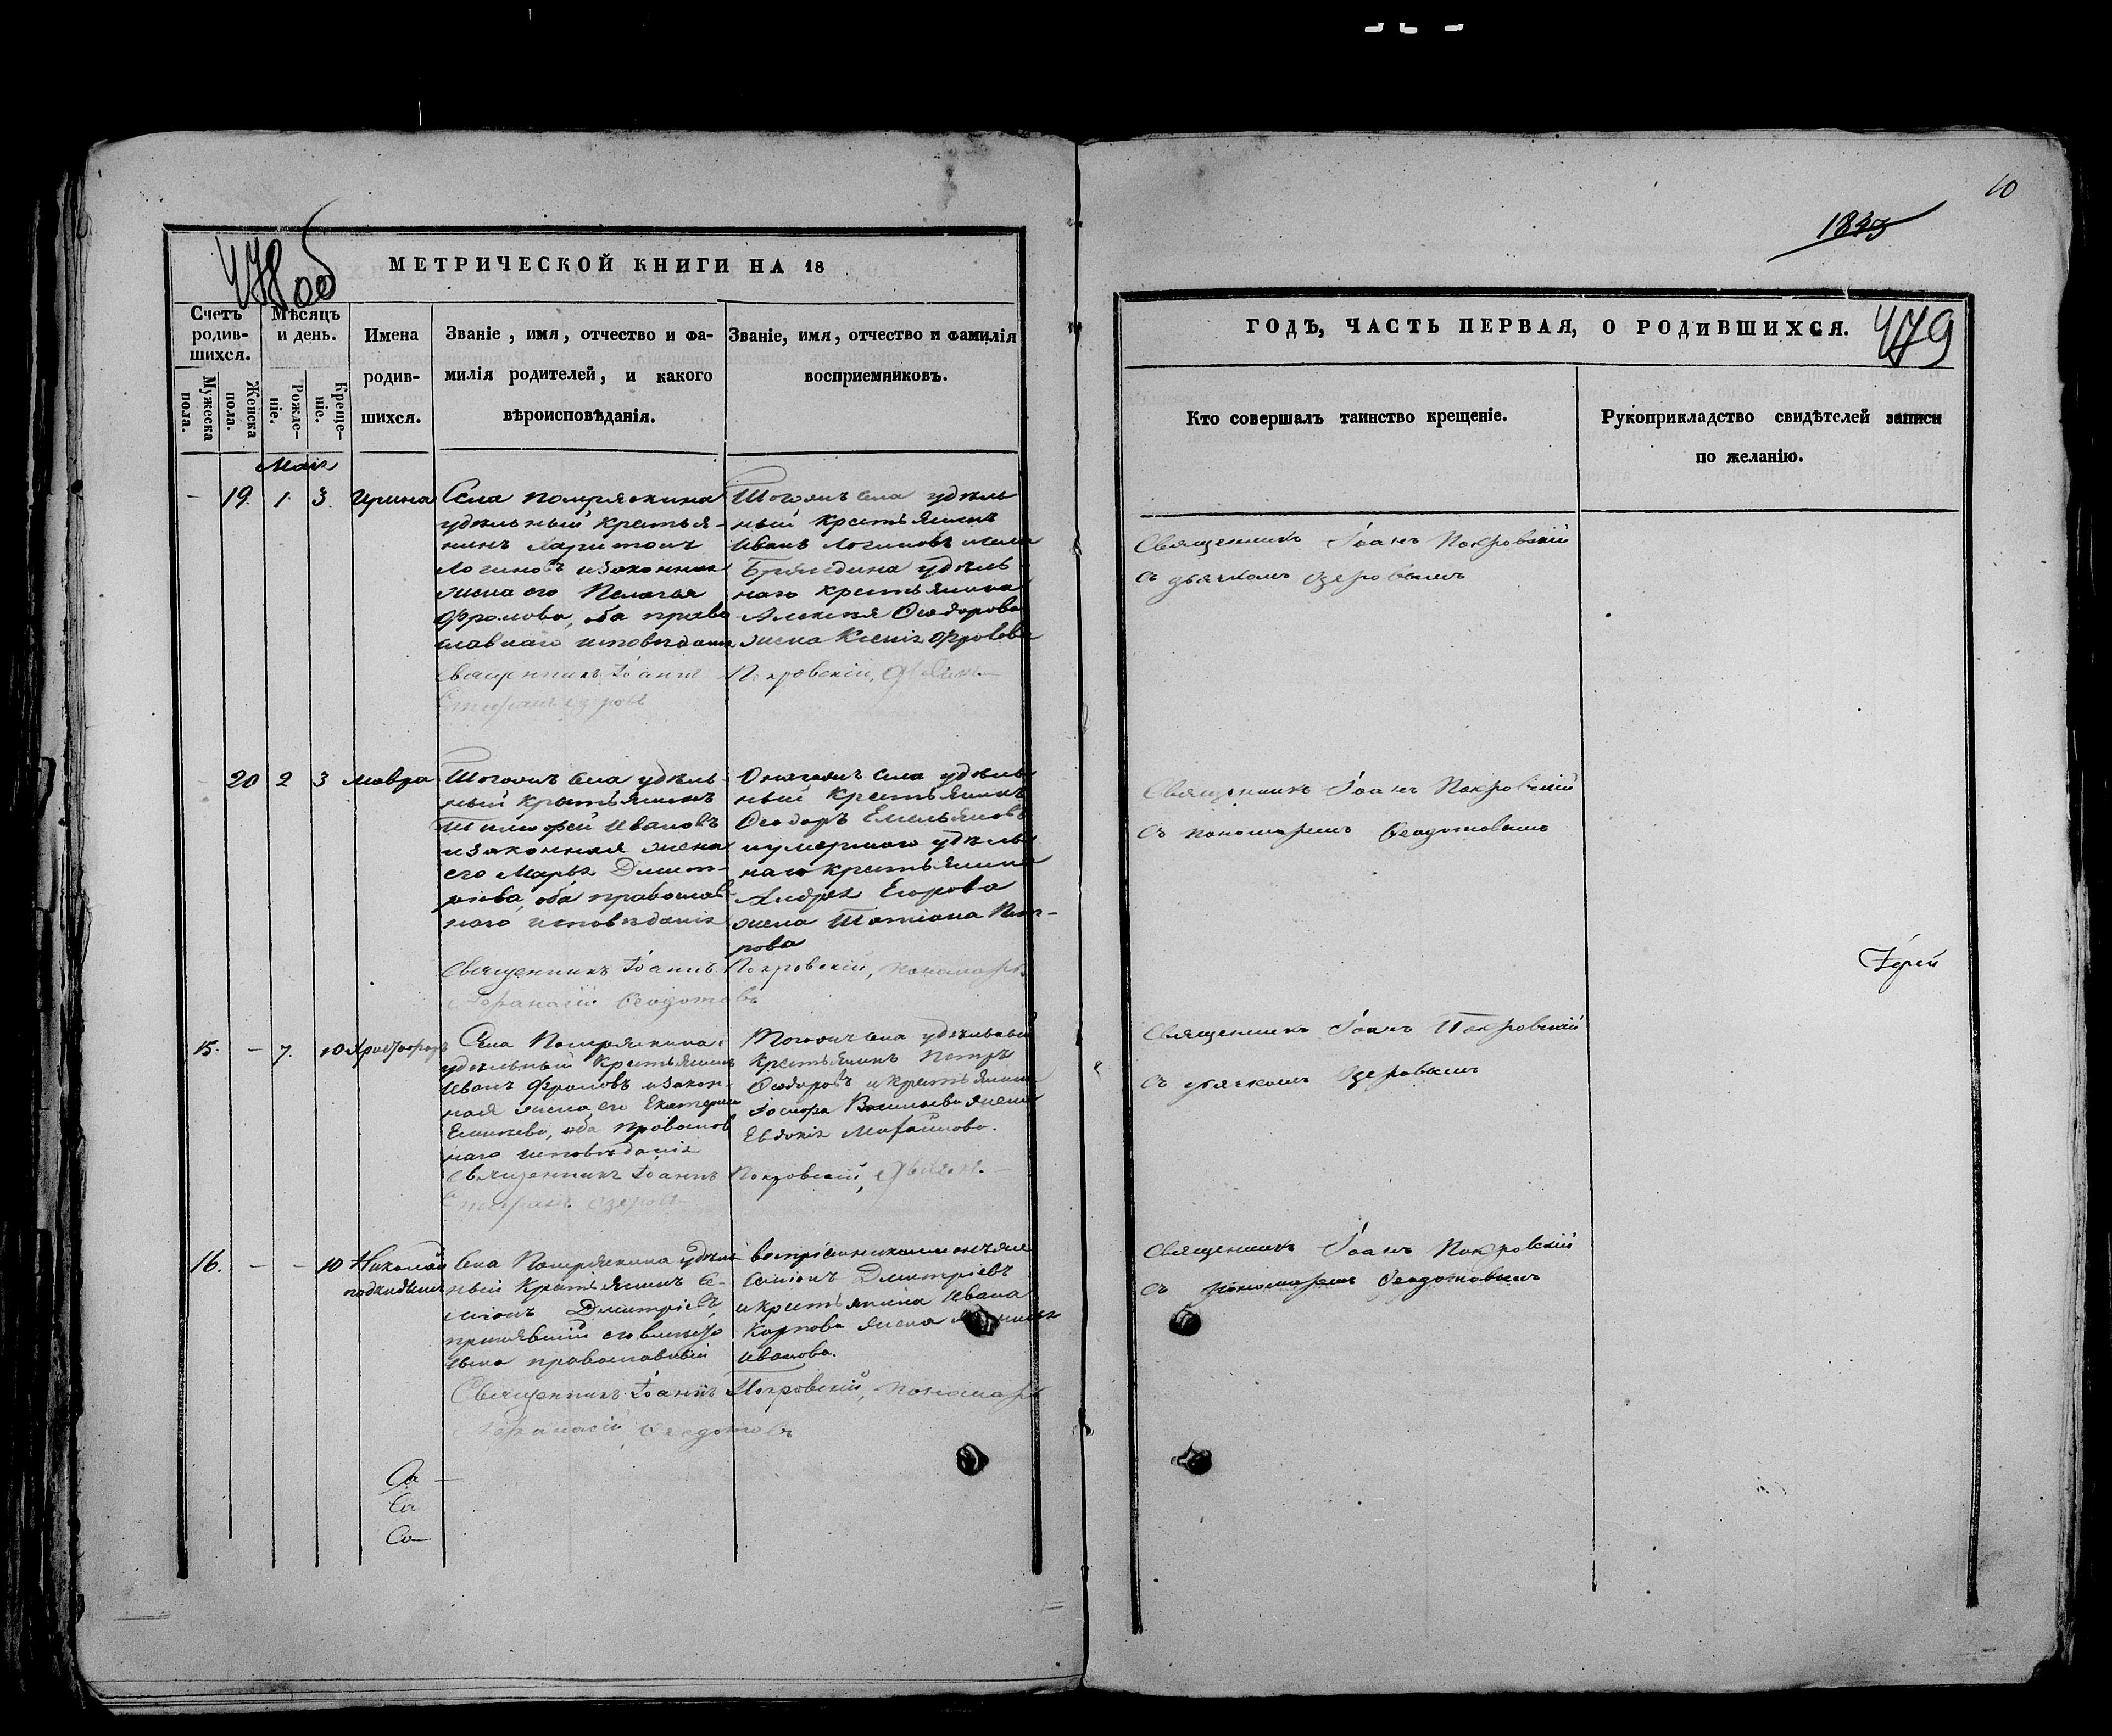 478об
МЕТРИЧЕСКОЙ КНИГИ НА 18
Счетъ родив-шихся.
Мужеска пола.
Женска пола.
Мѣсяцъ и день.
Рожде-ніе.
Креще-ніе.
Имена
родив-
шихся.
Званіе, имя, отчество и фа-
милія родителей, и какого
вѣроисповѣданія.
Званіе, имя, отчество и фамилія
восприемниковъ.
Маія
– 19. 1. 3. Ирина
Села Помряскина
удѣльный крестья-
нинъ Харитонъ
Логиновъ и законная
жена его Пелагея
Фролова, оба право
славнаго исповѣданія
Тогожъ села удѣль
ный крестьянинъ
Иванъ Логиновъ
удѣль
наго крестьянина
Алексѣя Ѳеодорова
жена Ксенія Фролова
Священникъ Іоаннъ Покровскій,
Стефанъ Озеровъ
20 2 3 Мавра
Тогожъ села удѣль
ный крестьянинъ
Тимофей Ивановъ
и законная жена
его Марья Димит-
ріева, оба православ
наго исповѣданія
Онагожъ села удѣль
ный крестьянинъ
Ѳеодоръ Емельяновъ
и умершаго удѣль
наго крестьянина
Андрея Егорова
жена Татіана Пет-
рова
Священникъ Іоаннъ Покровскій, пономарь
Афанасій Ѳеодотовъ
15. – 7. 10 Христофоръ
Села Помряскина
удѣльный крестьянинъ
Иванъ Фроловъ и закон-
ная жена его Екатерина
оба православ
наго исповѣданія
Тогожъ села удѣльный
крестьянинъ Петръ
Ѳеодоровъ и крестьянина
Васильева жена
Евдокія
Священникъ Іоаннъ Покровскій,
Стефанъ Озеровъ
16. – – 10 Николай
подкидышъ
Села Помряскина удѣль
ный крестьянинъ Се-
міонъ Димитріевъ,
принявшій его вмѣсто
сына православный
Семіонъ Димитріевъ
и крестьянина Ивана
Карпова жена
Иванова.
Священникъ Іоаннъ Покровскій, пономарь
Афанасій Ѳеодотовъ
10
1843
479
ГОДЪ, ЧАСТЬ ПЕРВАЯ, О РОДИВШИХСЯ.
Кто совершалъ таинство крещеніе.
Рукоприкладство свидѣтелей записи
по желанію.
Священникъ Іоанъ Покровскій
съ дьячкомъ Озеровымъ
Священникъ Іоанъ Покровскій
съ пономаремъ Ѳеодотовымъ
Іерей
Священникъ Іоанъ Покровскій
съ дьячкомъ Озеровымъ
Священникъ Іоанъ Покровскій
съ пономаремъ Ѳеодотовымъ